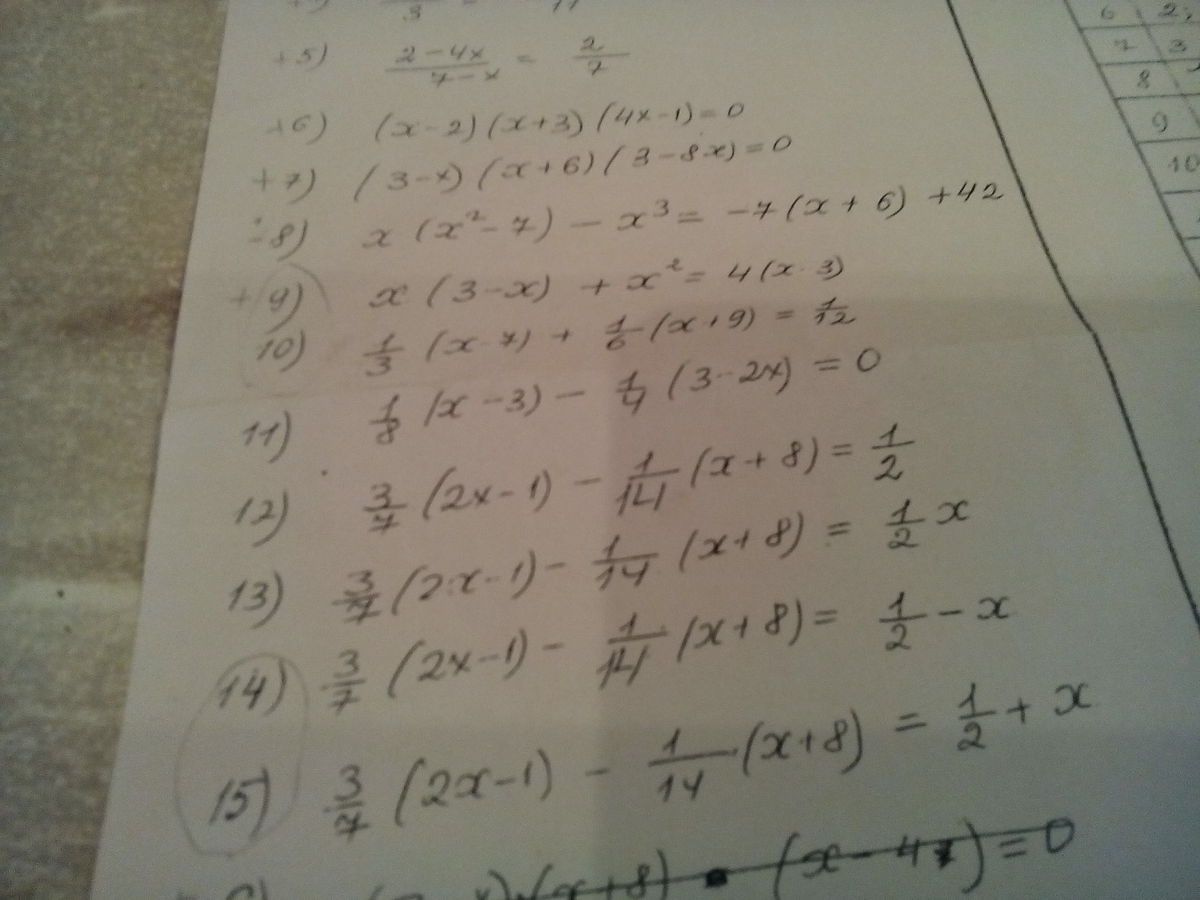 3
11
+5) (2-4x)/(7-x) = 2/7
+6) (x-2)(x+3)(4x-1)=0
+7) (3-x)(x+6)(3-8x)=0
8) x(x²-7)-x³=-7(x+6)+42
+9) x(3-x)+x²=4(x-3)
10) 1/3(x-7)+1/6(x+9)=1/12
11) 1/8(x-3)-1/4(3-2x)=0
12) 3/7(2x-1)-1/14(x+8)=1/2
13) 3/7(2x-1)-1/14(x+8)=1/2x
14) 3/7(2x-1)-1/14(x+8)=1/2-x
15) 3/7(2x-1)-1/14(x+8)=1/2+x
(x+8) (x-4)=0
6 2;
7 3
8
9
10